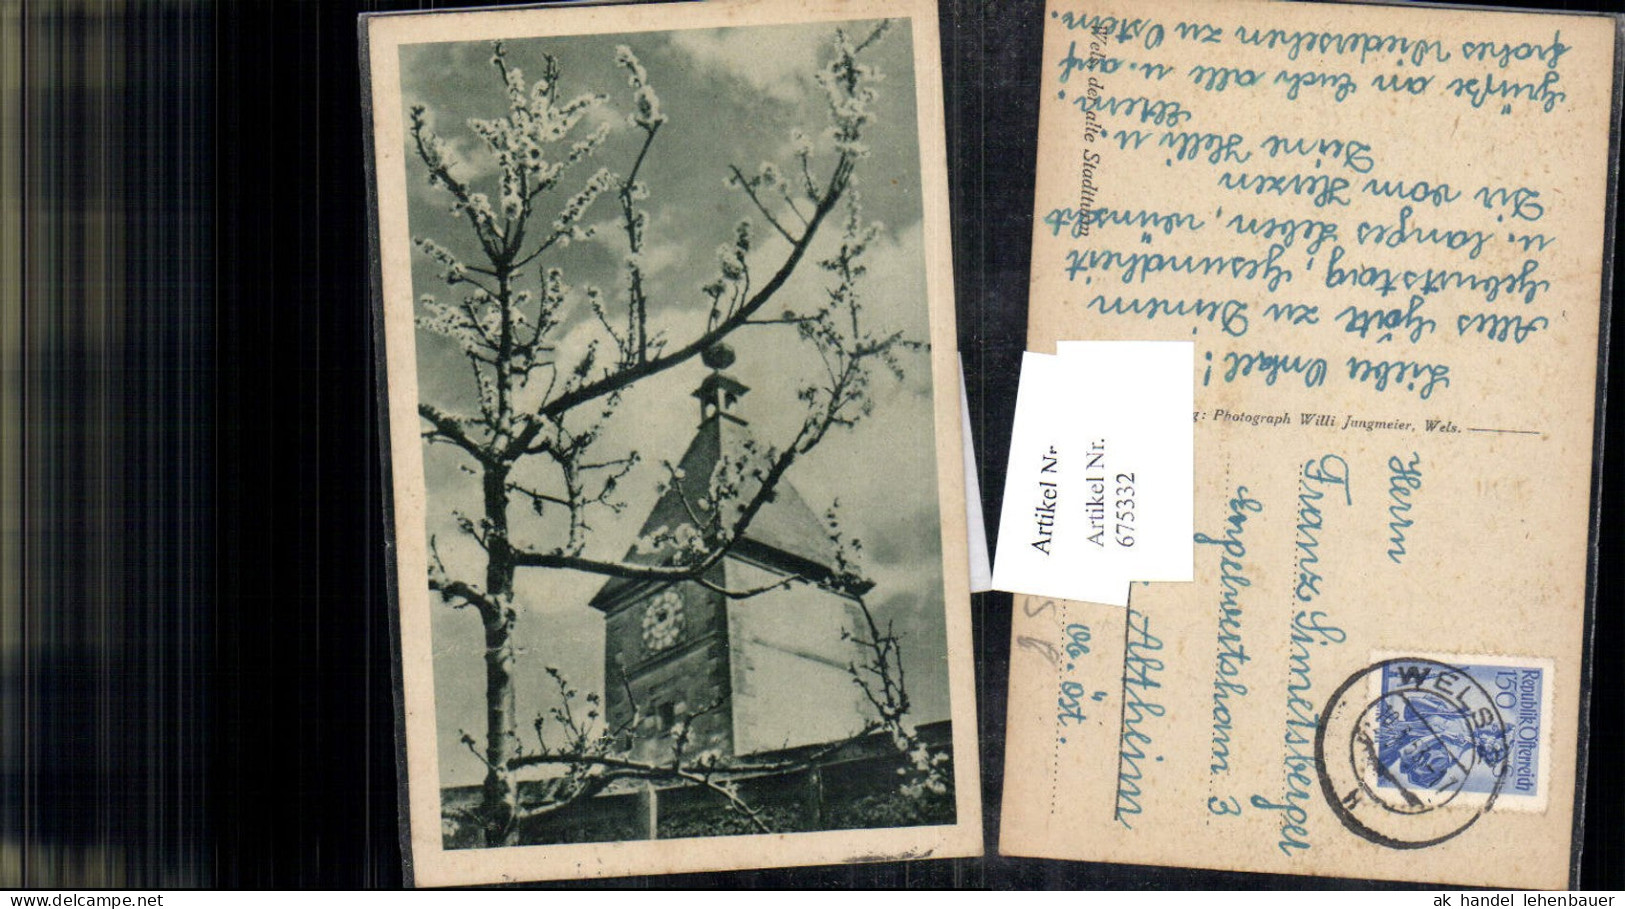 Lieber Onkel!
Alles Gute zu Deinem
Geburtstag, Gesundheit
u. langes Leben, wünscht
Dir vom Herzen
Deine Helli u.
Eltern.
Grüße an Euch alle u. auf
frohes Wiedersehen zu Ostern.
Wels, der alte Stadtturm
g: Photograph Willi Jungmeier, Wels.
Herrn
Franz Simetsberger
Engelwertsham 3
Altheim
Ob. Öst.
Artikel Nr
Artikel Nr.
675332
Republik Österreich
150
WELS
ak handel lehenbauer